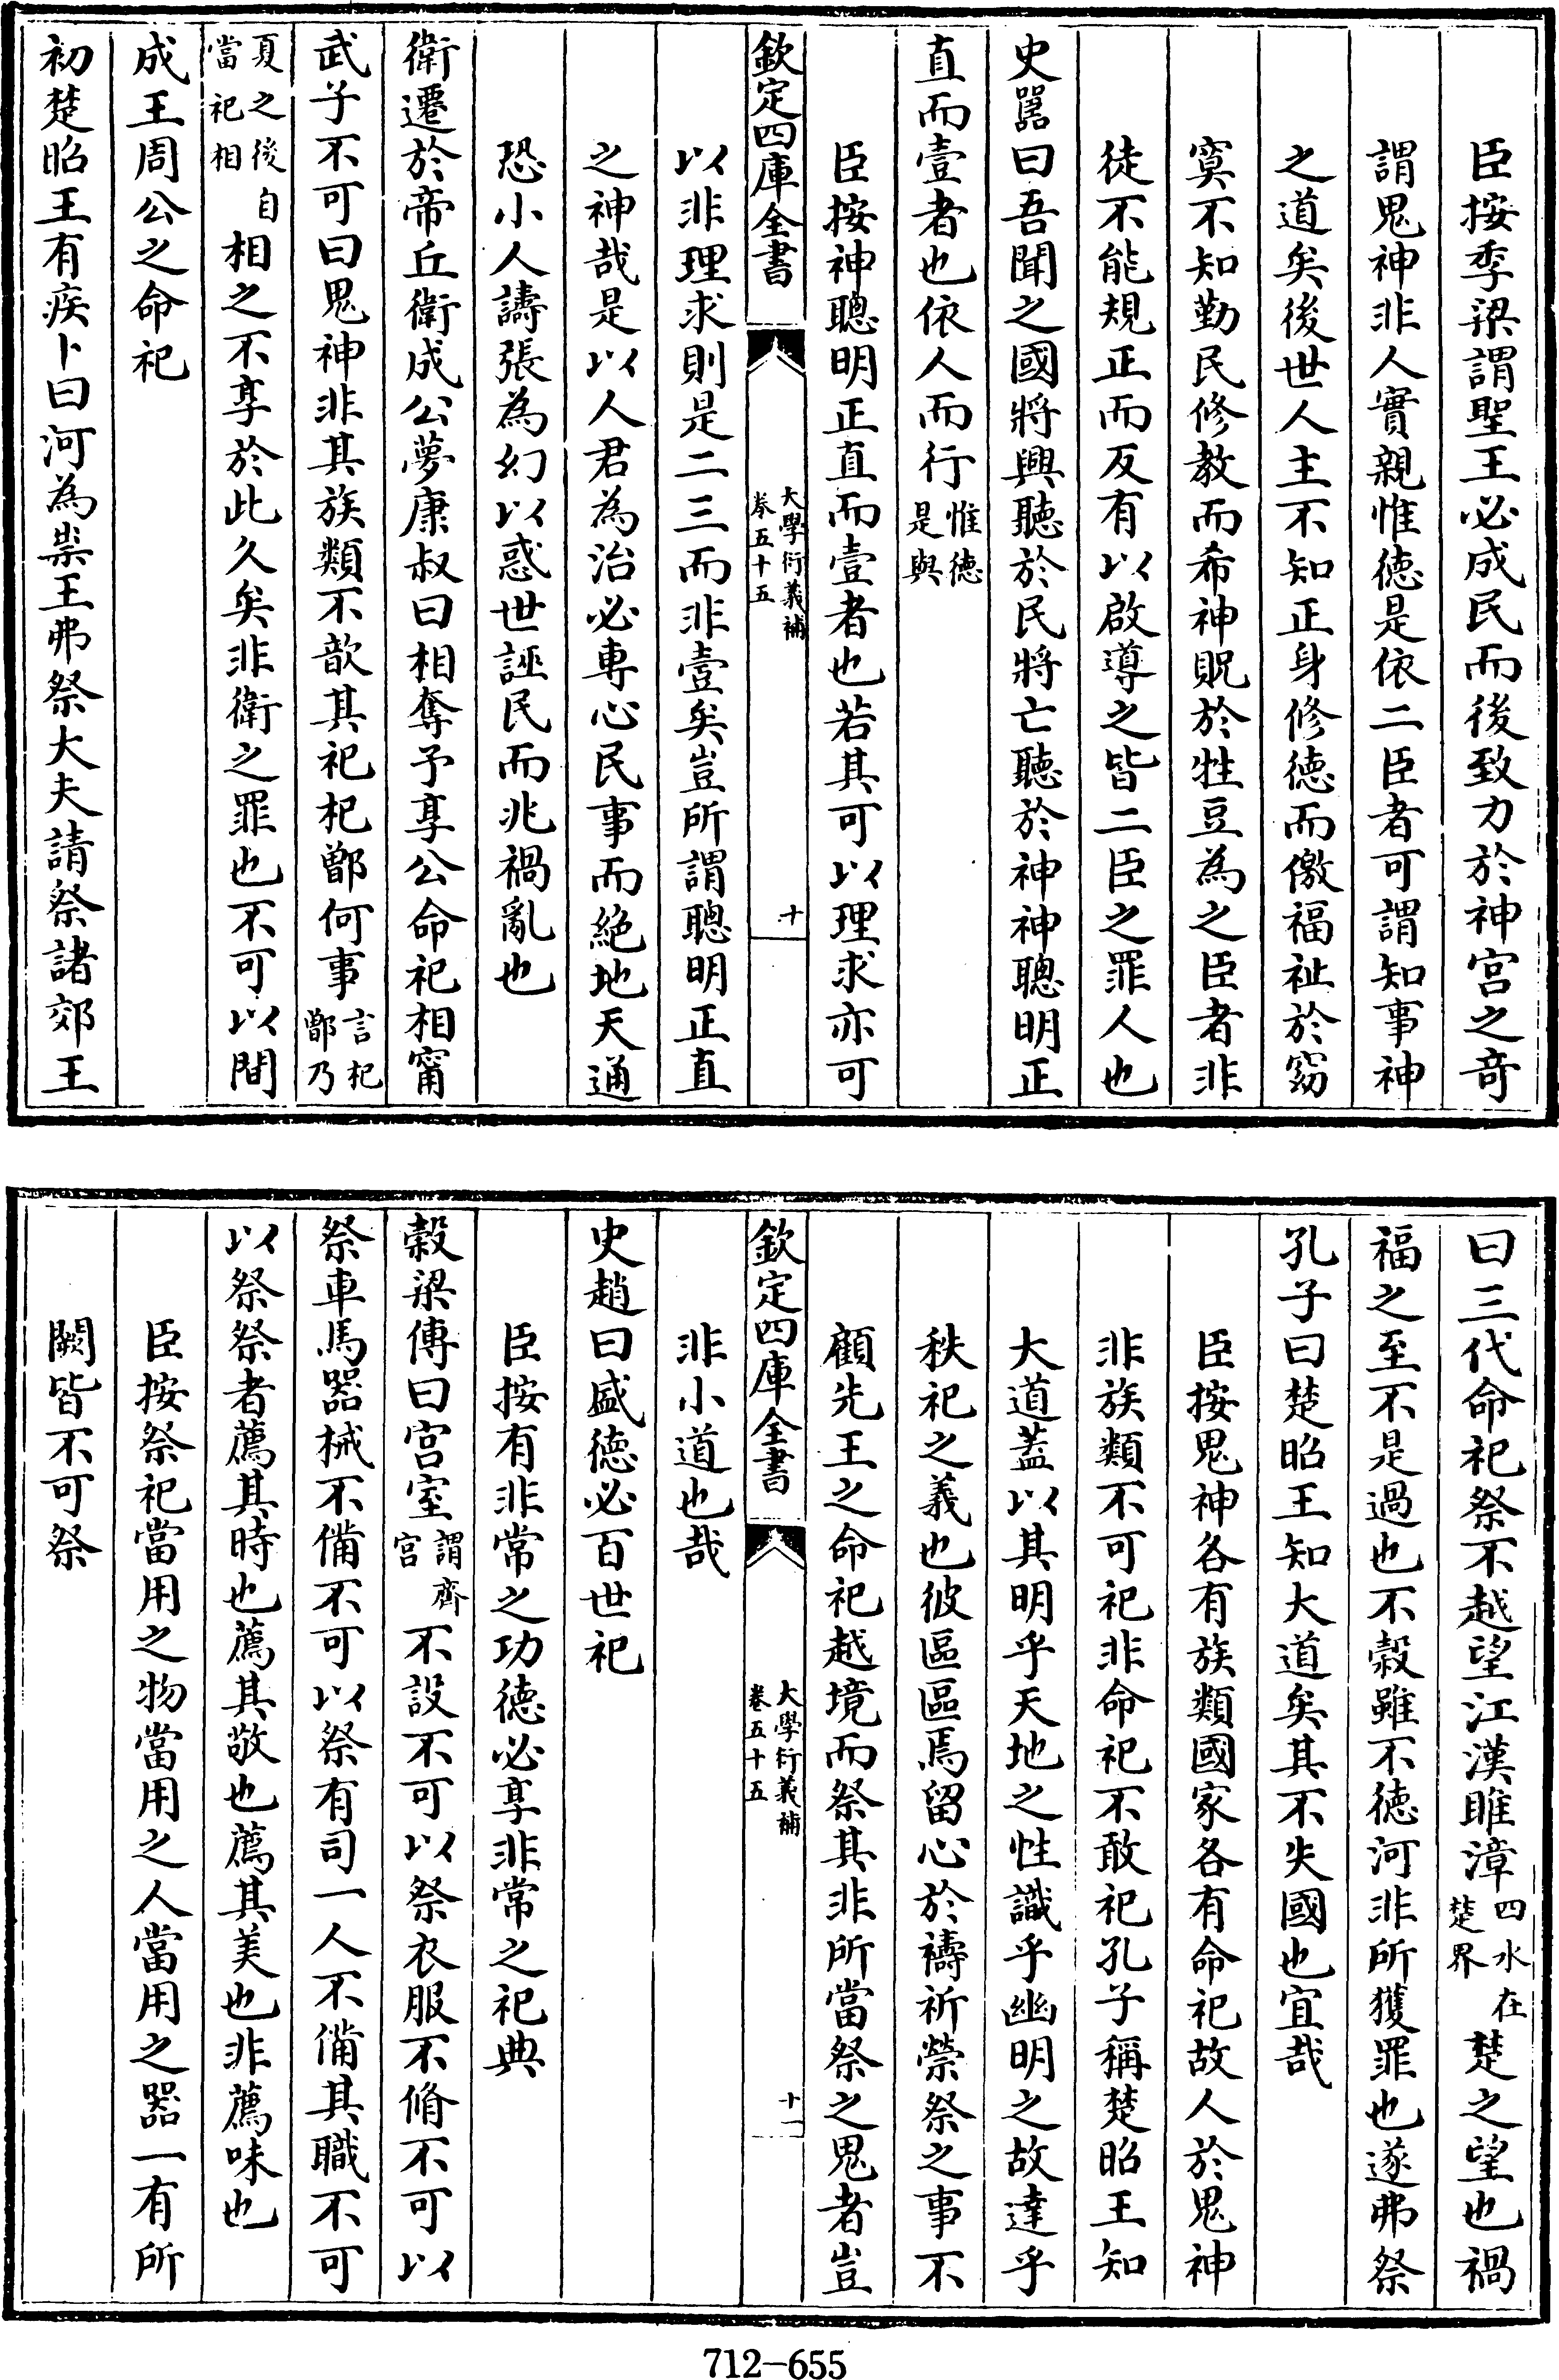 臣按季梁謂聖王必成民而後致力於神宫之竒
謂鬼神非人實親惟徳是依二臣者可謂知事神
之道矣後世人主不知正身修徳而儌福祉於窈
寞不知勤民修教而希神貺於牲豆為之臣者非
徒不能規正而反有以啟導之皆二臣之罪人也
史嚚曰吾聞之國將興聽於民將亡聽於神神聰明正
直而壹者也依人而行惟徳是與
臣按神聰明正直而壹者也若其可以理求亦可
欽定四庫全書 大學衍義補 卷五十五 十
以非理求則是二三而非壹矣豈所謂聰明正直
之神哉是以人君為治必專心民事而絶地天通
恐小人譸張為幻以惑世誣民而兆禍亂也
衛遷於帝丘衛成公夢康叔曰相奪予享公命祀相甯
武子不可曰鬼神非其族類不歆其祀杞鄫何事言杞鄫乃
夏之後自當祀相相之不享於此久矣非衛之罪也不可以間
成王周公之命祀
初楚昭王有疾卜曰河為祟王弗祭大夫請祭諸郊王
曰三代命祀祭不越望江漢睢漳四水在楚界楚之望也禍
福之至不是過也不榖雖不徳河非所獲罪也遂弗祭
孔子曰楚昭王知大道矣其不失國也宜哉
臣按鬼神各有族類國家各有命祀故人於鬼神
非族類不可祀非命祀不敢祀孔子稱楚昭王知
大道蓋以其明乎天地之性識乎幽明之故達乎
秩祀之義也彼區區焉留心於禱祈禜祭之事不
顧先王之命祀越境而祭其非所當祭之鬼者豈
欽定四庫全書 大學衍義補 卷五十五 十一
非小道也哉
史趙曰盛徳必百世祀
臣按有非常之功徳必享非常之祀典
榖梁傳曰宫室謂齊宫不設不可以祭衣服不脩不可以
祭車馬器械不備不可以祭有司一人不備其職不可
以祭祭者薦其時也薦其敬也薦其美也非薦味也
臣按祭祀當用之物當用之人當用之器一有所
闕皆不可祭
712-655